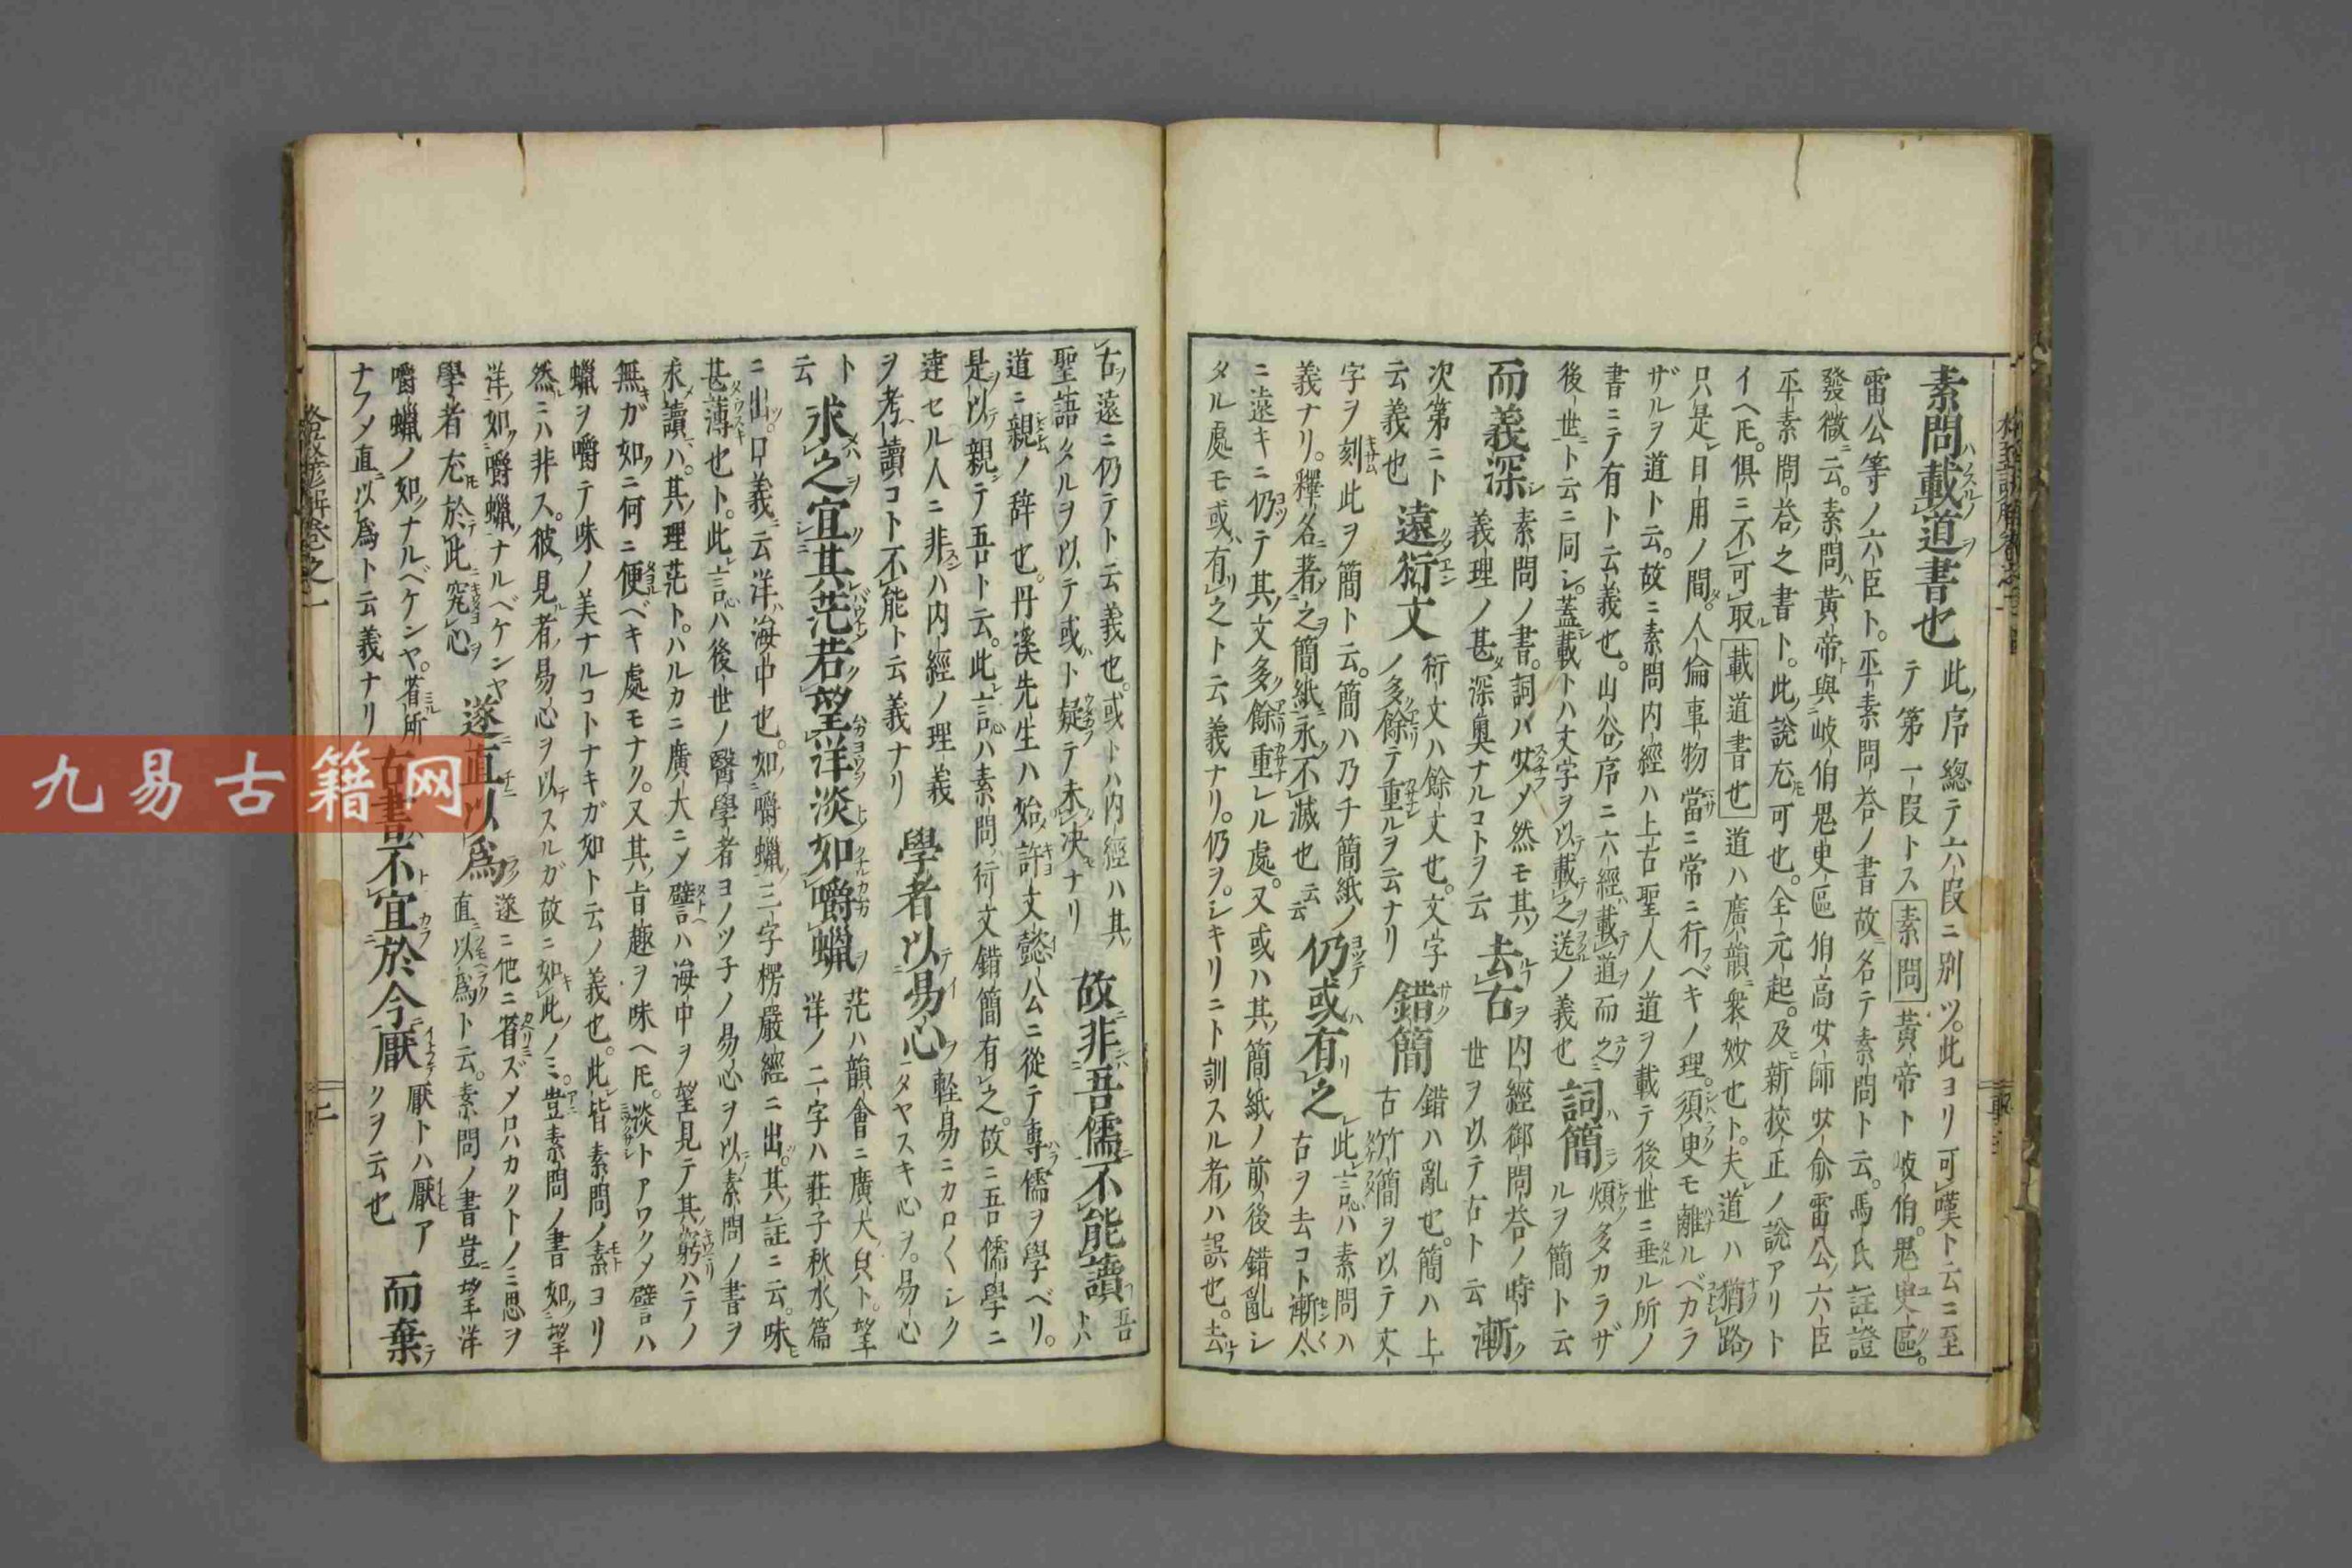 素問載道書也
此序總テ六段ニ別ツ。此ヨリ可嘆ト云ニ至
テ第一段トス素問黃帝ト岐伯。鬼臾區。
雷公等ノ六臣ト。平素問荅ノ書故ニ名テ素問ト云。馬氏註證
發微ニ云。素問ハ黃帝與岐伯鬼臾區伯高少師少俞雷公六臣
平素問荅之書ト。此說尤可也。全元起。及新校正ノ說アリト
イヘ𪜈。俱ニ不可取載道書也道ハ廣韻ニ衆妙也ト。夫道ハ猶路
只是日用ノ間。人倫事物當ニ常ニ行ベキノ理。須臾モ離ルベカラ
ザルヲ道ト云。故ニ素問內經ハ上古聖人ノ道ヲ載テ後世ニ垂ル所ノ
書ニテ有ト云義也。山谷序ニ六經載道而之
後世ト云ニ同シ。蓋載トハ大字ヲ以テ載之送ノ義也
詞簡
煩多カラザ
ルヲ簡ト云
而義深
素問ノ書。詞ハ少メ然モ其
義理ノ甚深奧ナルコトヲ云
去古
內經御問荅ノ時
世ヲ以テ古ト云
漸
次第ニト
云義也
遠衍文
衍文ハ餘文也。文字
ノ多餘テ重ルヲ云ナリ
錯簡
錯ハ亂也。簡ハ上
古竹簡ヲ以テ文
字ヲ刻此ヲ簡ト云。簡ハ乃チ簡紙ノ
義ナリ。釋名ニ著之簡紙永不滅也云云
仍或有之
此言ハ素問ハ
古ヲ去コト漸々
ニ遠キニ仍テ其文多餘重レル處。又或ハ其簡紙ノ前後錯亂シ
タル處モ或有之ト云義ナリ。仍ヲ。シキリニト訓スル者ハ誤也。去
古遠ニ仍テト云義也。或トハ內經ハ其
聖語タルヲ以テ或ト疑テ未決ナリ
故非吾儒不能讀
吾
トハ
道ニ親ノ辞也。丹溪先生ハ始許文懿公ニ從テ專儒ヲ學ベリ。
是以親テ吾ト云。此言ハ素問衍文錯簡有之。故ニ吾儒學ニ
達セル人ニ非ハ內經ノ理義
ヲ考讀コト不能ト云義ナリ
學者以易心
軽易ニカロ〱シク
タヤスキ心ヲ。易心
ト
云
求之宜其茫若望洋淡如嚼蠟
茫ハ韻會ニ廣大皃ト。望
洋ノ二字ハ莊子秋水篇
ニ出。口義ニ云洋ハ海中也。如嚼蠟三字楞嚴經ニ出。其註ニ云。味
甚薄也ト。此言ハ後世ノ醫學者ヨノツ子ノ易心ヲ以素問ノ書ヲ
求讀ハ。其理茫ト。ハルカニ廣大ニメ譬ハ海中ヲ望見テ其窮ハテノ
無ガ如ニ何ニ便ベキ處モナク。又其旨趣ヲ味ヘ𪜈。淡トアワクメ譬ハ
蠟ヲ嚼テ味ノ美ナルコトナキガ如ト云ノ義也。此皆素問ノ素ヨリ
然ニハ非ス。彼見者易心ヲ以テスルガ故ニ如此ノミ。豈素問ノ書如望
洋如嚼蠟ナルベケンヤ
學者尤於此究心
遂直以爲
遂ニ他ニ省ズメロハカクトノミ思ヲ
直以爲ト云。素問ノ書豈望洋
嚼蠟ノ如ナルベケンヤ。省所
ナフメ直以爲ト云義ナリ
古書不宜於今厭
厭トハ厭ア
クヲ云也
而棄
二
九易古籍网